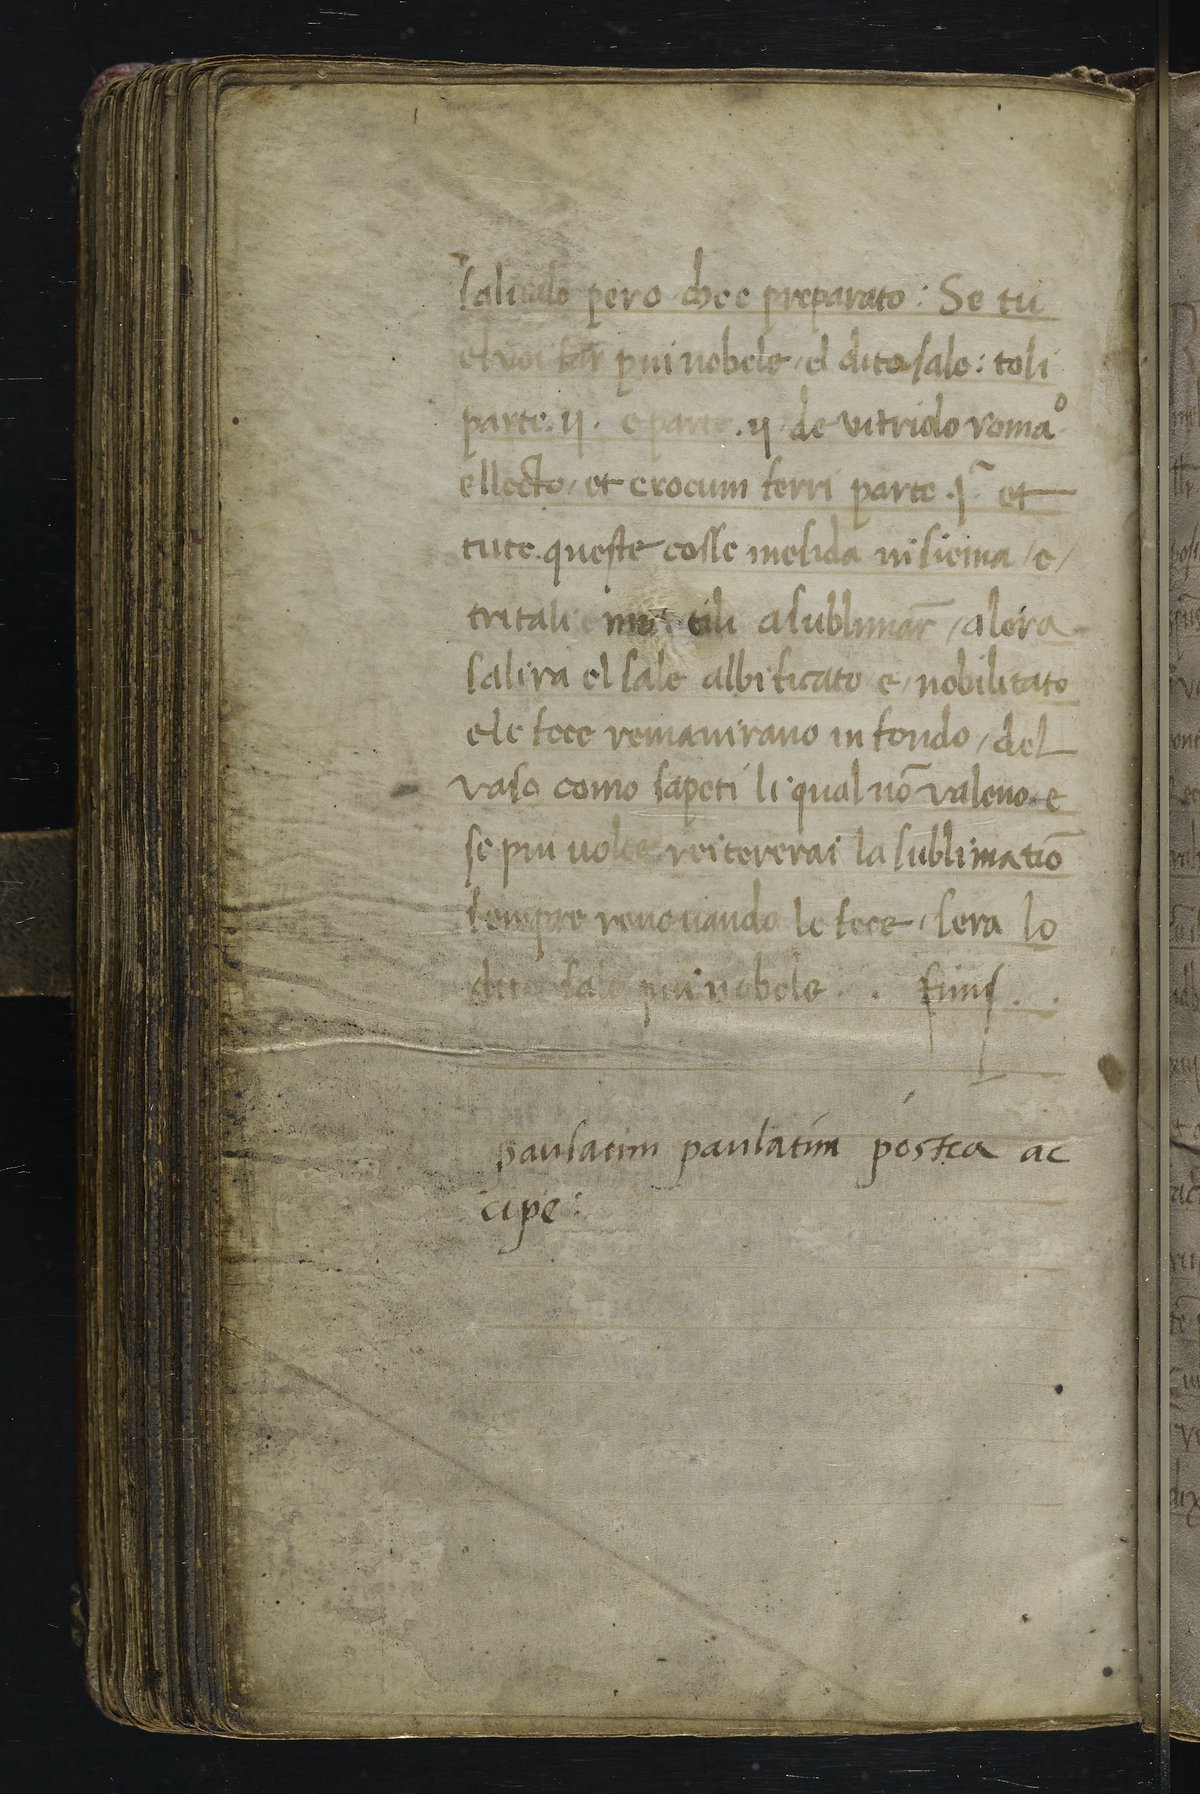 salivalo pero che e preparato : Se tu
el voi far piu nobele / el dito sale : toli
parte . ij . e parte . ij de vitriolo roma°
ellecto / et crocum ferri parte . j ̃ et
tute queste cosse mesida insiema / e /
tritali e mitili a sublimar̃ / alora
salira el sale albificato e / nobilitato
e le fece remanirano in fondo / del
vaso como sapeti li qual nõ valeno e
se piu volte reitererai la sublimatiõ
sempre renovando le fece / sera lo
dito sale piu nobele . . finis . .
paulatim paulatim postea ac
cipe :